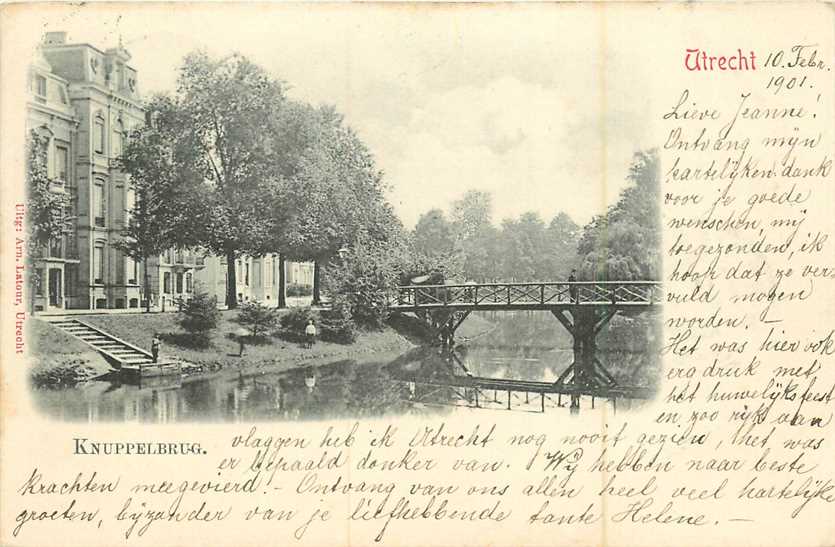 Utrecht 10 Febr.
1901.
Lieve Jeanne!
Ontvang mijn
hartelijken dank
voor je goede
wenschen, mij
toegezonden, ik
hoop dat ze ver-
vuld mogen
worden. —
Het was hier ook
erg druk met
het huwelijksfeest
en zoo rijk aan
vlaggen heb ik Utrecht nog nooit gezien, het was
er bepaald donker van. Wij hebben naar beste
krachten meegevierd. – Ontvang van ons allen heel veel hartelijke
groeten, bijzonder van je liefhebbende tante Helene. —
KNUPPELBRUG.
Uitg: Arn. Latour, Utrecht